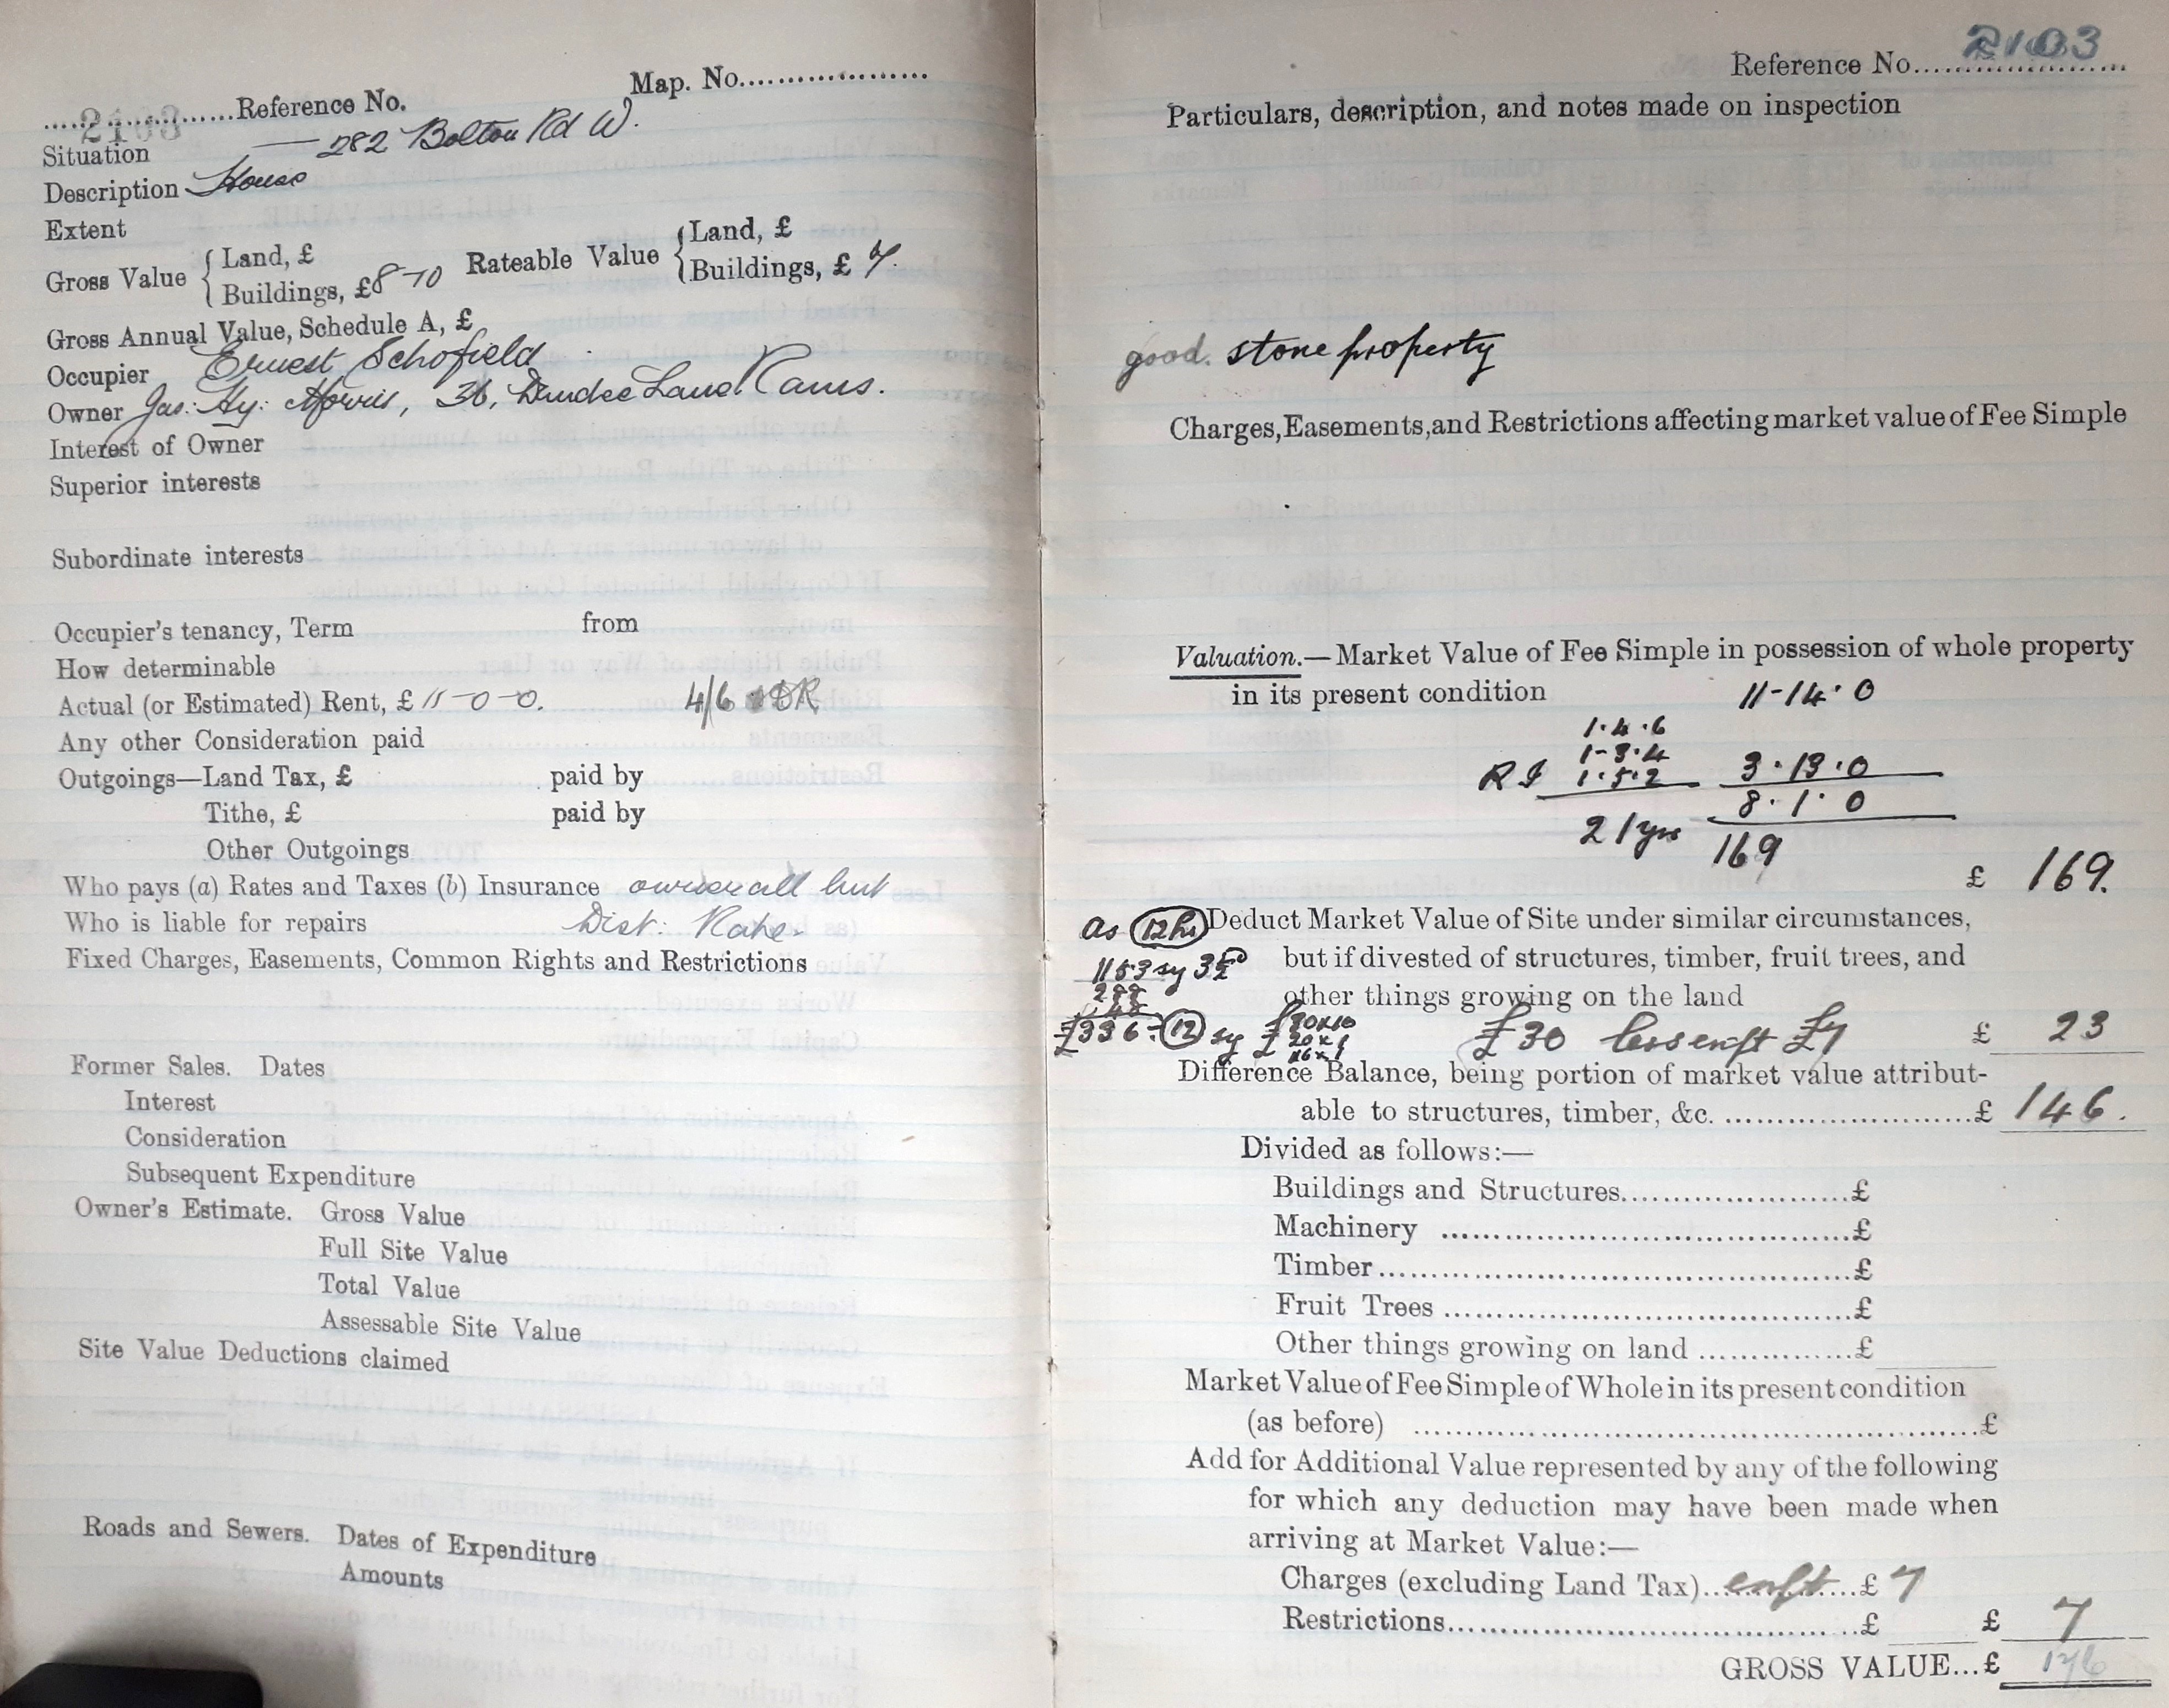 2103 Reference No. Map. No.
Situation — 282 Bolton Rd W.
Description House
Extent
Gross Value { Land, £ Rateable Value { Land, £
Buildings, £8-10 Buildings, £ 7.
Gross Annual Value, Schedule A, £
Occupier Ernest Schofield
Owner Jas: Hy: Morris, 36, Dundee Land Rams.
Interest of Owner
Superior interests
Subordinate interests
Occupier's tenancy, Term from
How determinable
Actual (or Estimated) Rent, £ 11-0-0. 4/6 DR
Any other Consideration paid
Outgoings—Land Tax, £ paid by
Tithe, £ paid by
Other Outgoings
Who pays (a) Rates and Taxes (b) Insurance owner all but
Who is liable for repairs Dist: Rate.
Fixed Charges, Easements, Common Rights and Restrictions
Former Sales. Dates
Interest
Consideration
Subsequent Expenditure
Owner's Estimate. Gross Value
Full Site Value
Total Value
Assessable Site Value
Site Value Deductions claimed
Roads and Sewers. Dates of Expenditure
Amounts
Reference No. 2103
Particulars, description, and notes made on inspection
good. stone property
Charges, Easements, and Restrictions affecting market value of Fee Simple
Valuation.—Market Value of Fee Simple in possession of whole property
in its present condition 11-14.0
1.4.6
1-3.4
R I 1.5.2 3.13.0
8.1.0
21 yrs 169
£ 169.
as 12 hs Deduct Market Value of Site under similar circumstances,
1153 sy but if divested of structures, timber, fruit trees, and
288 other things growing on the land
48
£336 ÷ 12 £30 less enft £7 £ 23
Difference Balance, being portion of market value attribut-
able to structures, timber, &c. £ 146.
Divided as follows:—
Buildings and Structures £
Machinery £
Timber £
Fruit Trees £
Other things growing on land £
Market Value of Fee Simple of Whole in its present condition
(as before) £
Add for Additional Value represented by any of the following
for which any deduction may have been made when
arriving at Market Value:—
Charges (excluding Land Tax) enft £ 7
Restrictions £ £ 7
GROSS VALUE...£ 176